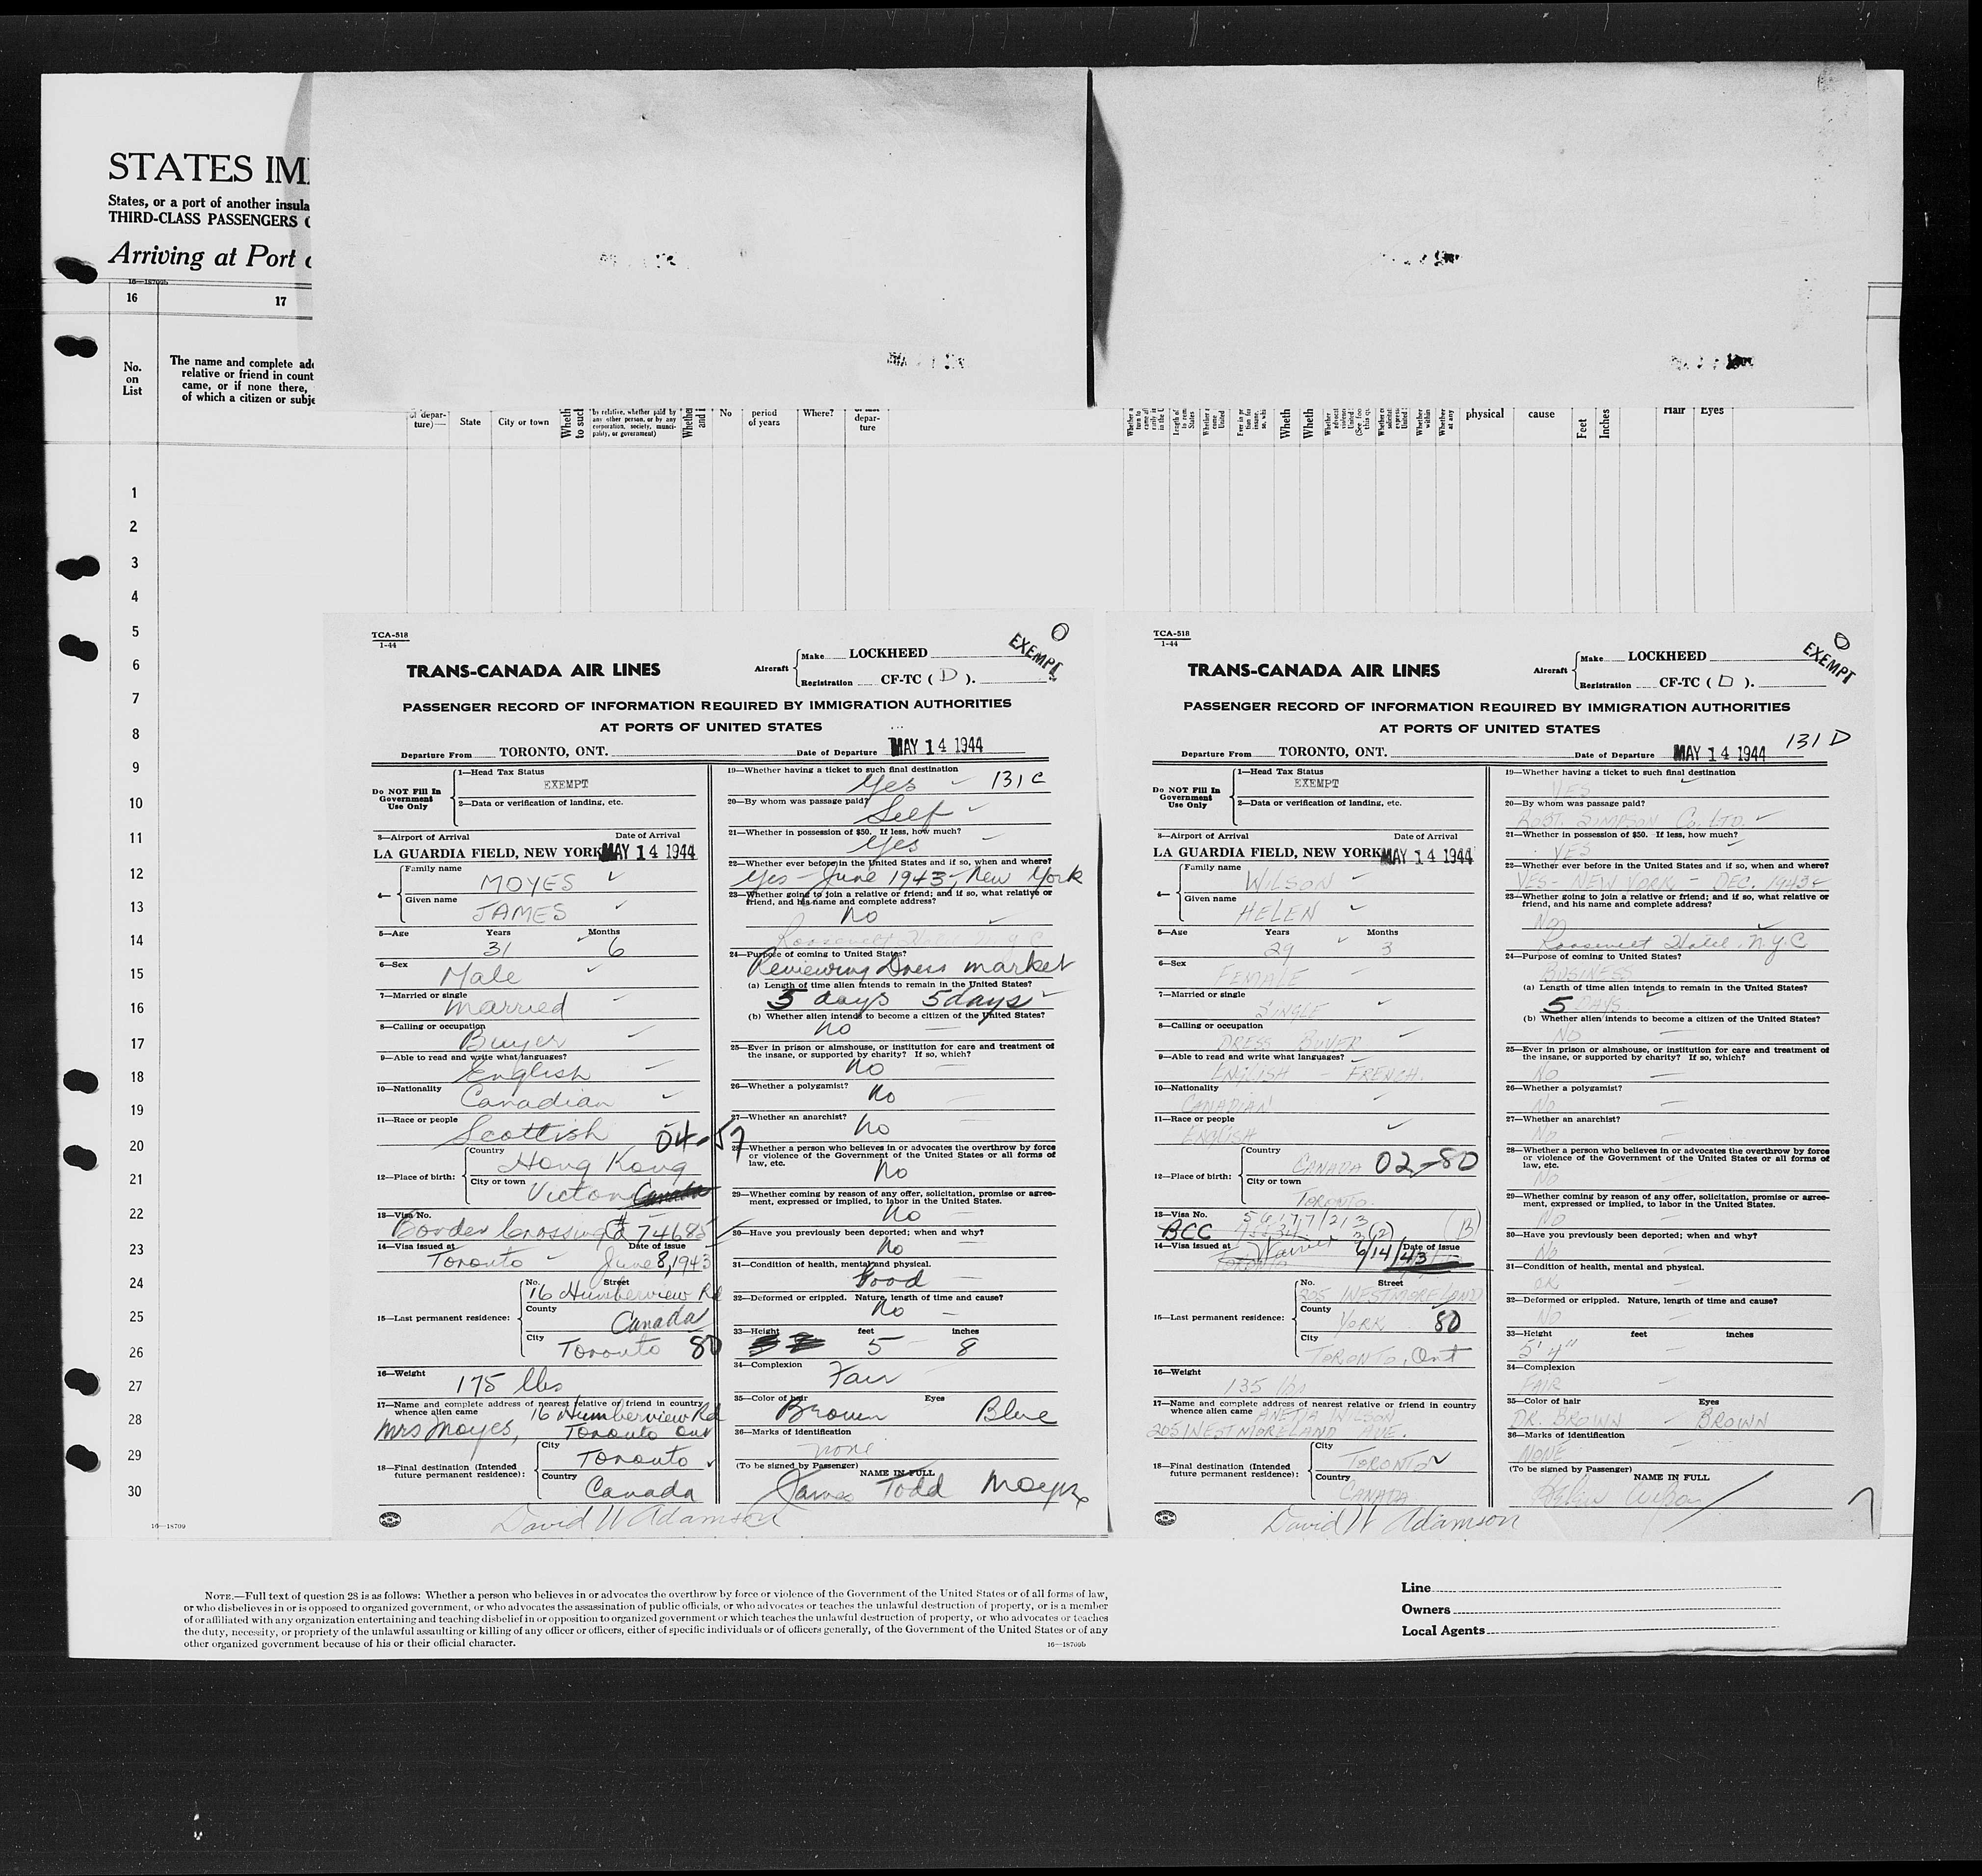 STATES IM
States, or a port of another insula
THIRD-CLASS PASSENGERS
Arriving at Port
16—18709b
16
17
No.
on
List
The name and complete add
relative or friend in count
came, or if none there,
of which a citizen or subje
of depar-
ture)—
State
City or town
Wheth
to such
by relative, whether paid by
any other person, or by any
corporation, society, munici-
pality, or government)
Whether
and i
No
period
of years
Where?
depar-
ture
Wheth
Wheth
physical
cause
Feet
Inches
Hair
Eyes
1
2
3
4
5
6
7
8
9
10
11
12
13
14
15
16
17
18
19
20
21
22
23
24
25
26
27
28
29
30
16—18709
TCA-518
1-44
TRANS-CANADA AIR LINES
Aircraft
Make LOCKHEED
Registration CF-TC ( D ).
O
EXEMPT
PASSENGER RECORD OF INFORMATION REQUIRED BY IMMIGRATION AUTHORITIES
AT PORTS OF UNITED STATES
Departure From TORONTO, ONT. Date of Departure MAY 14 1944
Do NOT Fill In
Government
Use Only
1—Head Tax Status
EXEMPT
2—Data or verification of landing, etc.
3—Airport of Arrival Date of Arrival
LA GUARDIA FIELD, NEW YORK MAY 14 1944
4—
Family name
MOYES
Given name
JAMES
5—Age Years Months
31 6
6—Sex
Male
7—Married or single
Married
8—Calling or occupation
Buyer
9—Able to read and write what languages?
English
10—Nationality
Canadian
11—Race or people
Scottish 04-57
12—Place of birth:
Country
Hong Kong
City or town
Victoria Canada
13—Visa No.
Border Crossing Cd # 74685
14—Visa issued at Date of issue
Toronto June 8, 1943
15—Last permanent residence:
No. Street
16 Humberview Rd
County
Canada
City
Toronto 80
16—Weight
175 lbs
17—Name and complete address of nearest relative or friend in country
whence alien came 16 Humberview Rd
Mrs Moyes, Toronto Ont
18—Final destination (Intended
future permanent residence):
City
Toronto
Country
Canada
David W Adamson
19—Whether having a ticket to such final destination
Yes 131 C
20—By whom was passage paid?
Self
21—Whether in possession of $50. If less, how much?
Yes
22—Whether ever before in the United States and if so, when and where?
Yes - June 1943 - New York
23—Whether going to join a relative or friend; and if so, what relative or
friend, and his name and complete address?
No
Roosevelt Hotel N.Y.C
24—Purpose of coming to United States?
Reviewing Dress market
(a) Length of time alien intends to remain in the United States?
5 days 5 days
(b) Whether alien intends to become a citizen of the United States?
No
25—Ever in prison or almshouse, or institution for care and treatment of
the insane, or supported by charity? If so, which?
No
26—Whether a polygamist?
No
27—Whether an anarchist?
No
28—Whether a person who believes in or advocates the overthrow by force
or violence of the Government of the United States or all forms of
law, etc.
No
29—Whether coming by reason of any offer, solicitation, promise or agree-
ment, expressed or implied, to labor in the United States.
No
30—Have you previously been deported; when and why?
No
31—Condition of health, mental and physical.
Good
32—Deformed or crippled. Nature, length of time and cause?
No
33—Height feet inches
5 8
34—Complexion
Fair
35—Color of hair Eyes
Brown Blue
36—Marks of identification
none
(To be signed by Passenger) NAME IN FULL
James Todd Moyes
TCA-518
1-44
TRANS-CANADA AIR LINES
Aircraft
Make LOCKHEED
Registration CF-TC ( D ).
O
EXEMPT
PASSENGER RECORD OF INFORMATION REQUIRED BY IMMIGRATION AUTHORITIES
AT PORTS OF UNITED STATES
131 D
Departure From TORONTO, ONT. Date of Departure MAY 14 1944
Do NOT Fill In
Government
Use Only
1—Head Tax Status
EXEMPT
2—Data or verification of landing, etc.
3—Airport of Arrival Date of Arrival
LA GUARDIA FIELD, NEW YORK MAY 14 1944
4—
Family name
WILSON
Given name
HELEN
5—Age Years Months
29 3
6—Sex
FEMALE
7—Married or single
SINGLE
8—Calling or occupation
DRESS BUYER
9—Able to read and write what languages?
ENGLISH - FRENCH.
10—Nationality
CANADIAN
11—Race or people
ENGLISH
12—Place of birth:
Country
CANADA 02-80
City or town
TORONTO.
13—Visa No.
BCC
14—Visa issued at Date of issue
Toronto 6/14/43
15—Last permanent residence:
No. Street
205 WESTMORELAND
County
YORK 80
City
TORONTO, Ont
16—Weight
135 lbs
17—Name and complete address of nearest relative or friend in country
whence alien came ANETTA WILSON
205 WESTMORELAND AVE.
18—Final destination (Intended
future permanent residence):
City
TORONTO
Country
CANADA
David W Adamson
19—Whether having a ticket to such final destination
YES
20—By whom was passage paid?
ROBT. SIMPSON Co. LTD.
21—Whether in possession of $50. If less, how much?
YES
22—Whether ever before in the United States and if so, when and where?
YES - NEW YORK - DEC. 1943
23—Whether going to join a relative or friend; and if so, what relative or
friend, and his name and complete address?
No
Roosevelt Hotel. N.Y.C
24—Purpose of coming to United States?
BUSINESS
(a) Length of time alien intends to remain in the United States?
5 DAYS
(b) Whether alien intends to become a citizen of the United States?
NO
25—Ever in prison or almshouse, or institution for care and treatment of
the insane, or supported by charity? If so, which?
NO
26—Whether a polygamist?
NO
27—Whether an anarchist?
NO
28—Whether a person who believes in or advocates the overthrow by force
or violence of the Government of the United States or all forms of
law, etc.
NO
29—Whether coming by reason of any offer, solicitation, promise or agree-
ment, expressed or implied, to labor in the United States.
NO
30—Have you previously been deported; when and why?
NO
31—Condition of health, mental and physical.
OK
32—Deformed or crippled. Nature, length of time and cause?
NO
33—Height feet inches
5' 4"
34—Complexion
FAIR
35—Color of hair Eyes
DR. BROWN - BROWN
36—Marks of identification
NONE
(To be signed by Passenger) NAME IN FULL
Helen Wilson
NOTE.—Full text of question 28 is as follows: Whether a person who believes in or advocates the overthrow by force or violence of the Government of the United States or of all forms of law,
or who disbelieves in or is opposed to organized government, or who advocates the assassination of public officials, or who advocates or teaches the unlawful destruction of property, or is a member
of or affiliated with any organization entertaining and teaching disbelief in or opposition to organized government or which teaches the unlawful destruction of property, or who advocates or teaches
the duty, necessity, or propriety of the unlawful assaulting or killing of any officer or officers, either of specific individuals or of officers generally, of the Government of the United States or of any
other organized government because of his or their official character.
16—18709b
Line
Owners
Local Agents